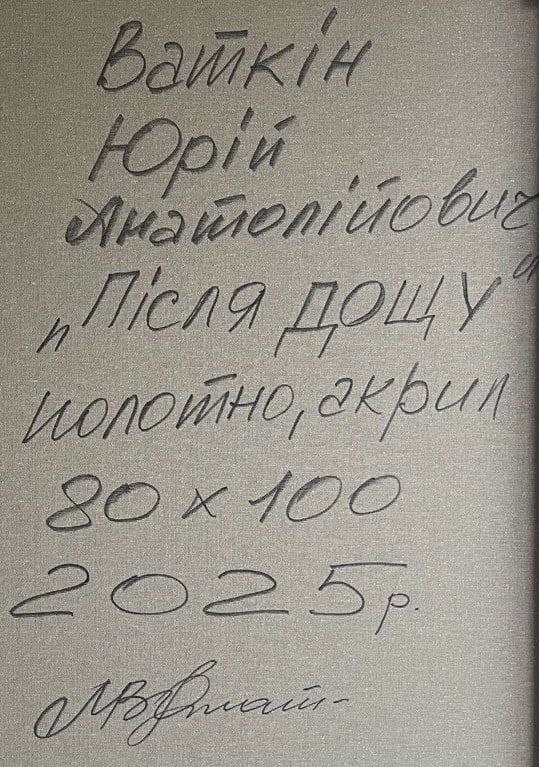 Ваткін
Юрій
Анатолійович
„Після дощу“
полотно, акрил
80 х 100
2025р.